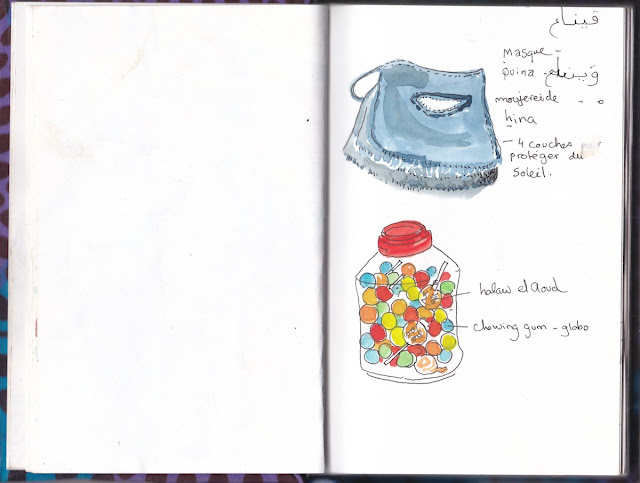 قيناع
masque -
quina قيناع
moujereide
hina
- 4 couches pour
protéger du
soleil.
halaw el aoud
chewing gum - globo